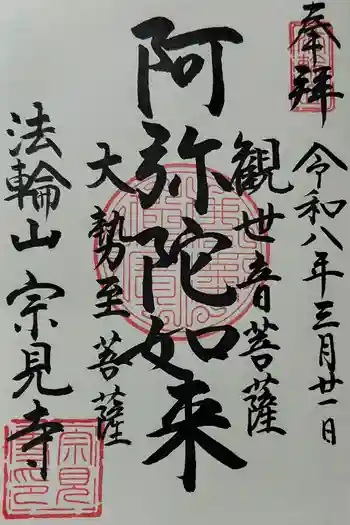 奉拝
令和八年三月廿一日
観世音菩薩
阿弥陀如来
大勢至菩薩
法輪山宗見寺